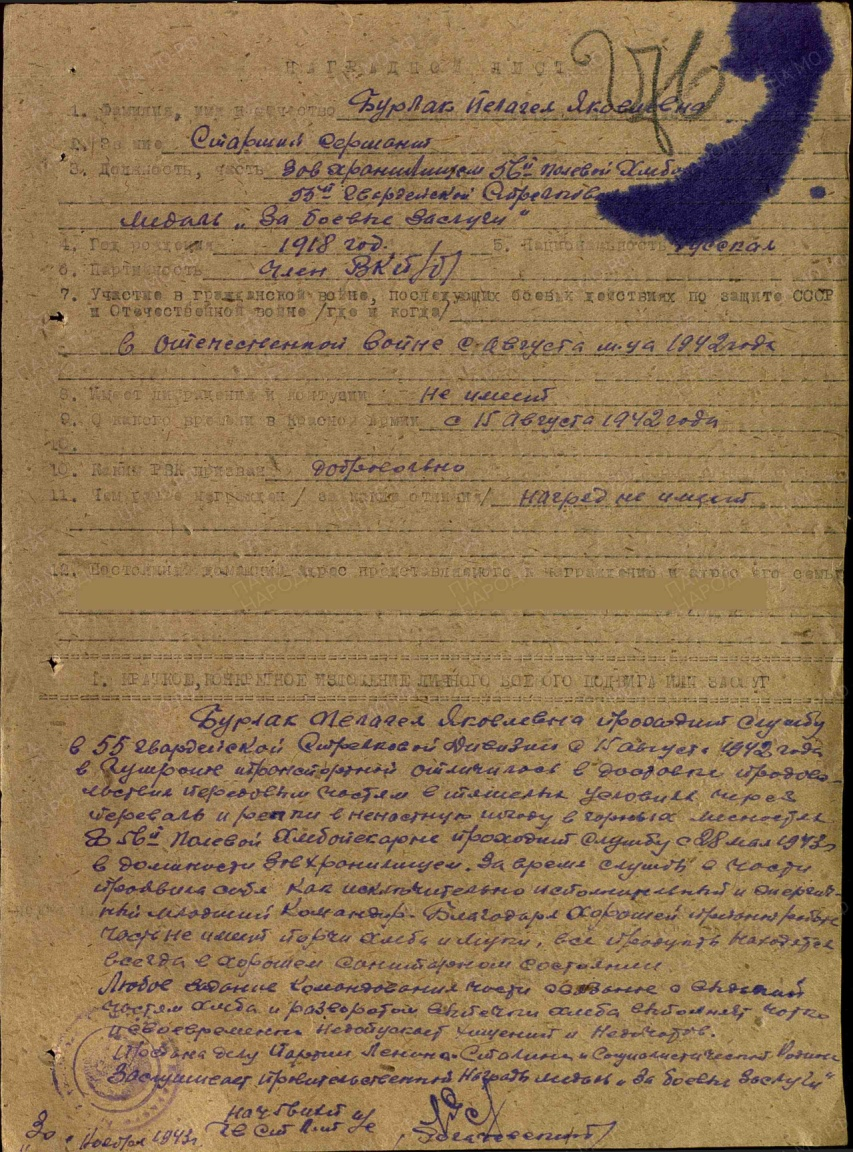 НАГРАДНОЙ ЛИСТ
276
1. Фамилия, имя и отчество Бурлак Пелагея Яковлевна
2. Звание Старший сержант
3. Должность, часть Зав хранилищем 56й полевой Хлебо
55й Гвардейской Стрелково
медаль „За боевые заслуги"
4. Год рождения 1918 год. 5. Национальность русская
6. Партийность член ВКП/б/
7. Участие в гражданской войне, последующих боевых действиях по защите СССР
и Отечественной войне /где и когда/
в отечественной войне с Августа м-ца 1942 года
8. Имеет ли ранения и контузии не имеет
9. С какого времени в Красной Армии с 15 Августа 1942 года
10.
10. Каким РВК призван добровольно
11. Чем ранее награжден /за какие отличия/ наград не имеет
12. Постоянный домашний адрес представляемого к награждению и адрес его семьи
1. КРАТКОЕ, КОНКРЕТНОЕ ИЗЛОЖЕНИЕ ЛИЧНОГО БОЕВОГО ПОДВИГА ИЛИ ЗАСЛУГ
Бурлак Пелагея Яковлевна проходит службу
в 55 Гвардейской Стрелковой Дивизии с 15 августа 1942 года
в транспортной отличилось в доставки продово-
льствия передовым частям в тяжелых условиях через
перевалы и реки в ненастную погоду в горных местностях
В 56й Полевой Хлебопекарне проходит службу с 28 мая 1943г
в должности Зав хранилищем. За время службы в части
проявила себя как исключительно исполнительный и энергич-
ный младший Командир. Благодаря Хорошей
часть не имеет порчи хлеба и муки, все продукты находятся
всегда в хорошем санитарном состоянии.
Любое задание Командования части
частям хлеба и выпечки хлеба выполняет четко
и своевременно Недопускает хищений и Недочетов.
Предана делу Партии Ленина-Сталина и Социалистической Родине
Заслуживает правительственной Награды медаль „За боевые заслуги"
30 Ноября 1943г